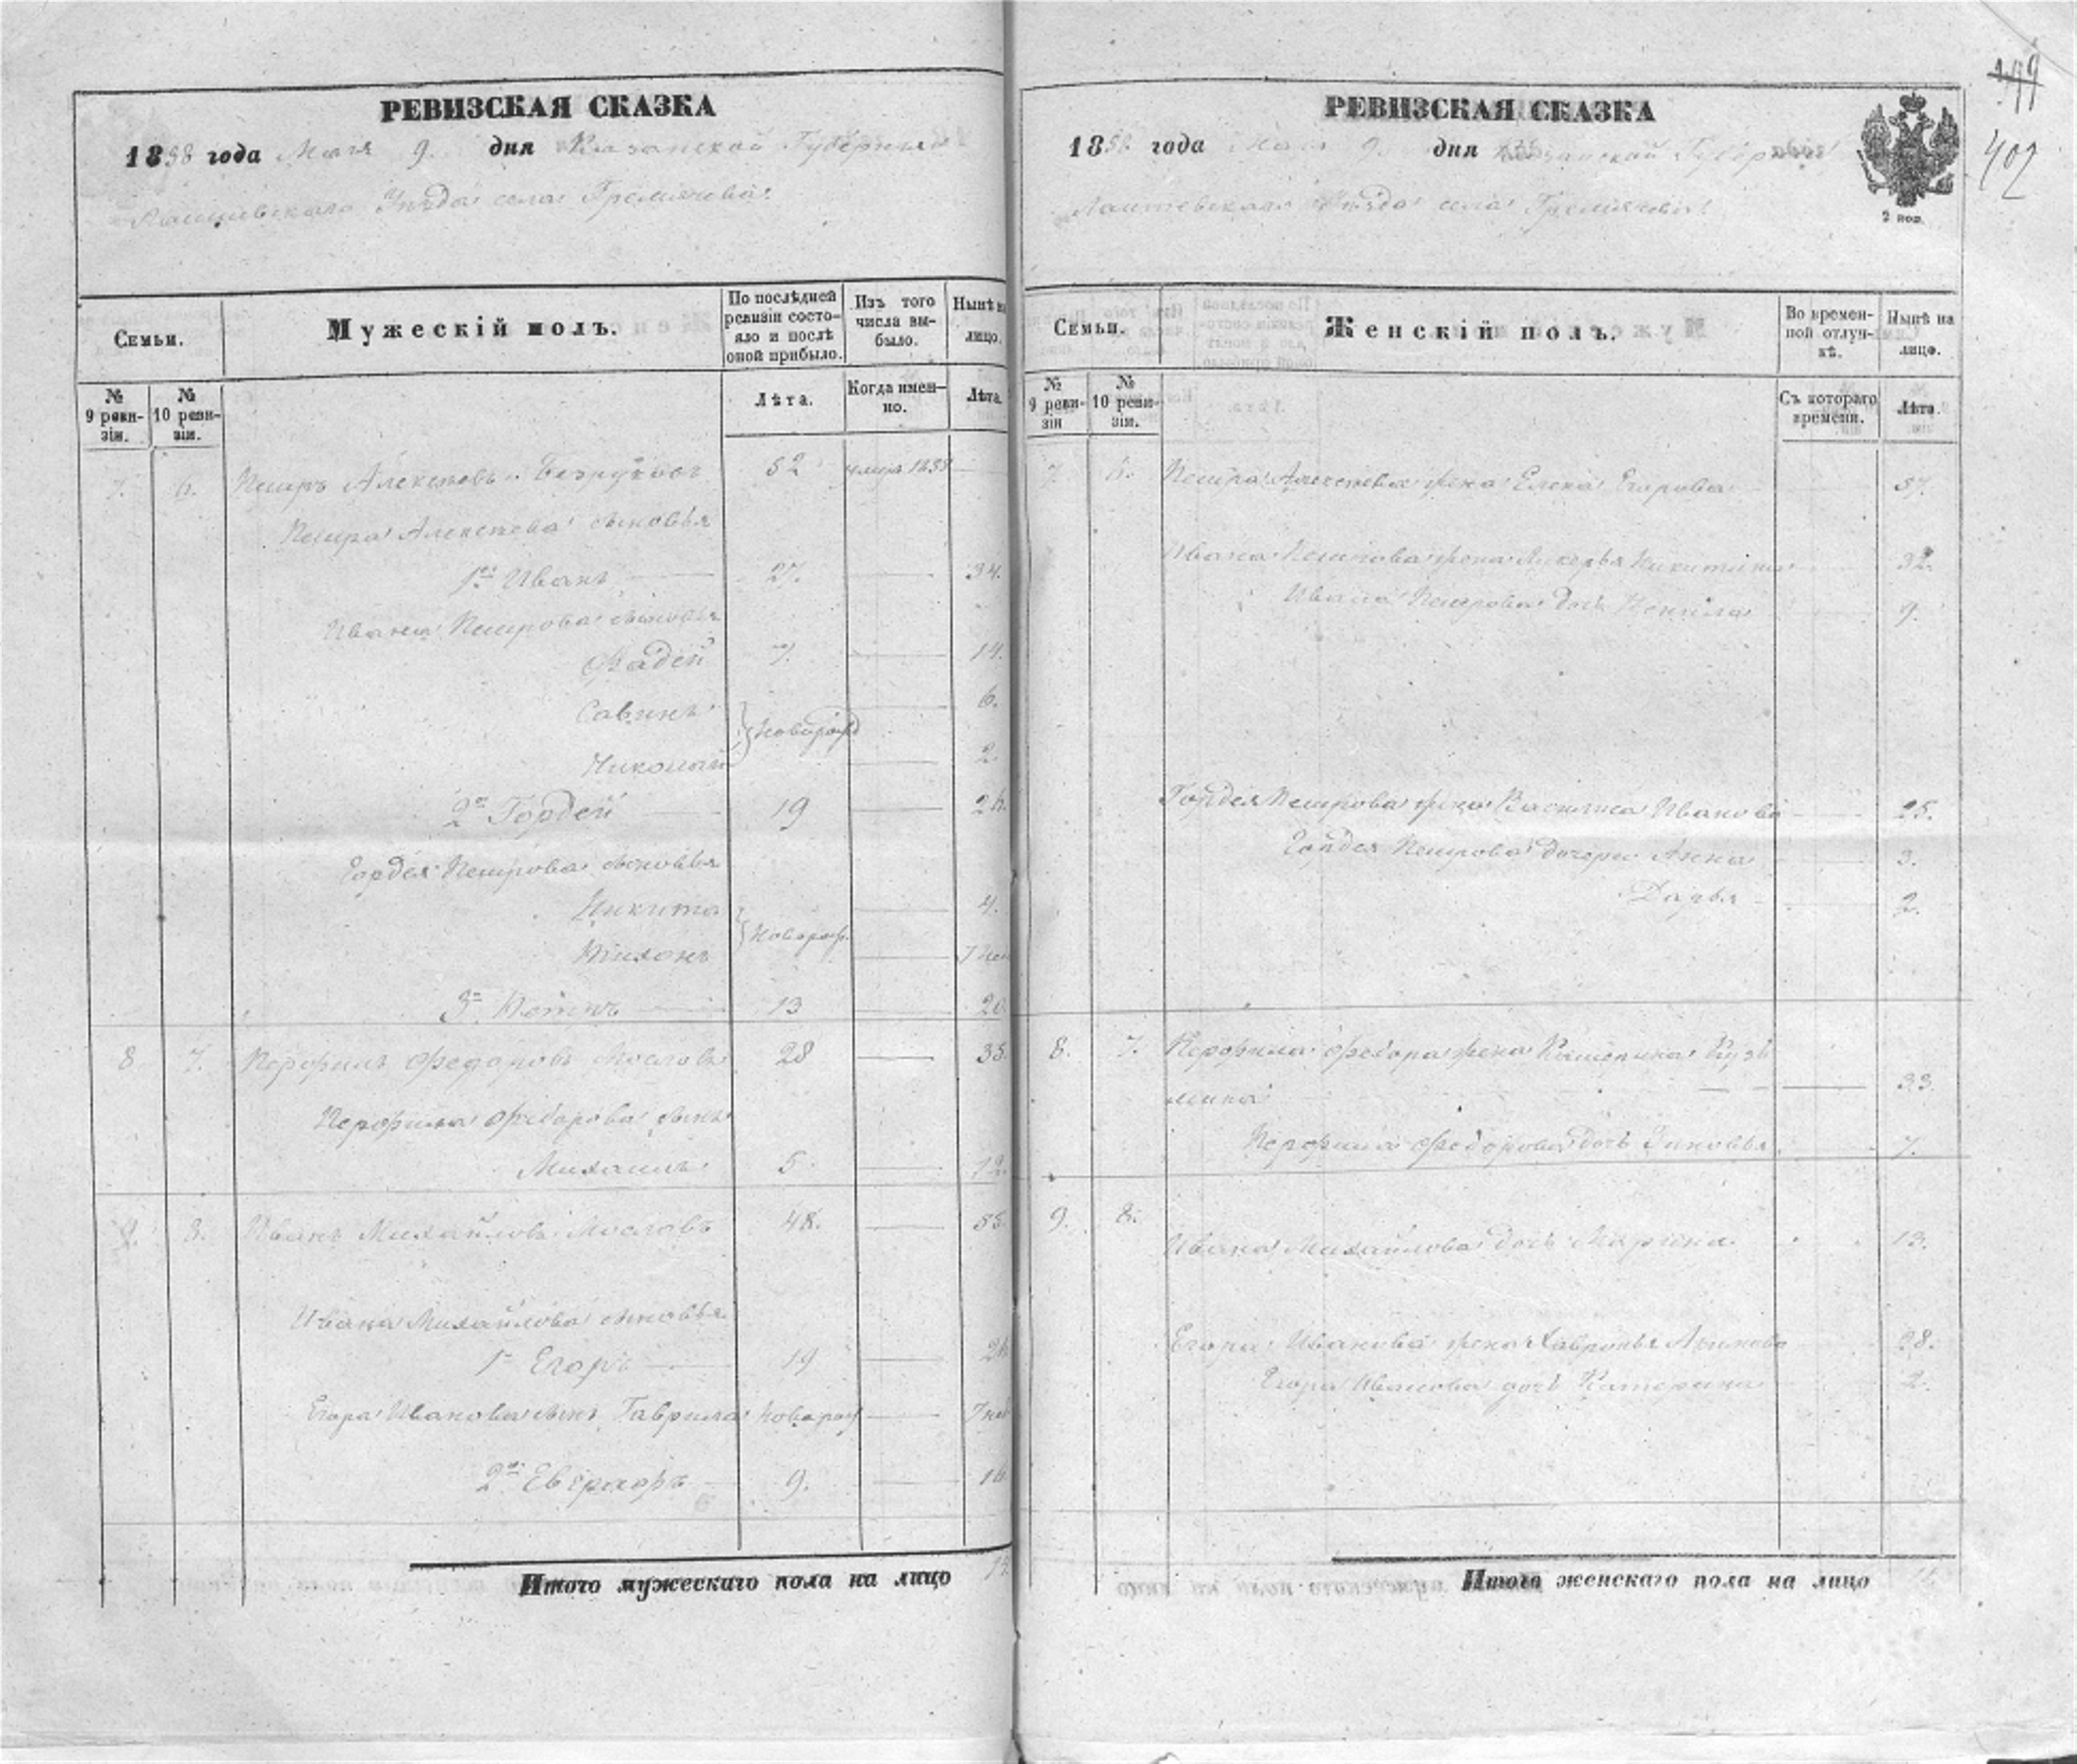 РЕВИЗСКАЯ СКАЗКА
1858 года Мая 9. дня Казанской Губернии
Лаишевскаго Уѣзда села Гремячева.
Семьи.
Мужескій полъ.
По послѣдней ревизіи состояло и послѣ оной прибыло.
Изъ того числа выбыло.
Нынѣ на лицо.
№ 9 ревизіи.
№ 10 ревизіи.
Лѣта.
Когда именно.
Лѣта.
7. 6. Петръ Алексѣевъ 52 умеръ 185
Петра Алексѣева сыновья
1й Иванъ 27. 34.
Ивана Петрова сыновья
Фадей 7. 14.
Савинъ 6.
новорожд
Николай 2.
2й Гордей 19 26
Гордея Петрова сыновья
Никита 4.
новорож.
Тихонъ 7 не
3й 13 20
8 7. Перфилъ Федоровъ Мословъ 28 35.
Перфила Федорова сынъ
Михаилъ 5. 12.
9. 8. Иванъ Михайловъ Мословъ 48. 55.
Ивана Михайлова сыновья
1й Егоръ 19 26
Егора Иванова сынъ Гаврила новорож 7 не
2й 9. 16
Итого мужескаго пола на лицо
РЕВИЗСКАЯ СКАЗКА
1858 года Мая 9. дня Казанской Губерніи
Лаишевскаго Уѣзда села Гремячева.
2 коп.
402
Семьи.
Женскій полъ.
Во временной отлучкѣ.
Нынѣ на лицо.
№ 9 ревизіи
№ 10 ревизіи.
Съ котораго времени.
Лѣта.
7. 6. Петра Алексѣева жена Елена Егорова 57.
Ивана Петрова жена Лукерья Никитина 32.
Ивана Петрова дочь 9.
Гордея Петрова жена Василиса Иванова 25.
Гордея Петрова дочери Анна 3.
Дарья 2.
8. 7. Перфила Федора жена Катерина Кузь
мина 33.
Перфила Федорова дочь Зиновья 7.
9. 8.
Ивана Михайлова дочь Марина 13.
Егора Иванова жена Хавронья 28.
Егора Иванова дочь Катерина 2.
Итого женскаго пола на лицо